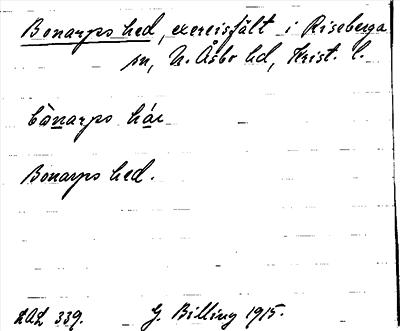 Bonarps hed, exercisfält i Riseberga
sn, N. Åsbo hd, Krist. l.
bònarps
Bonarps hed.
LAL 339. G. Billing 1915.